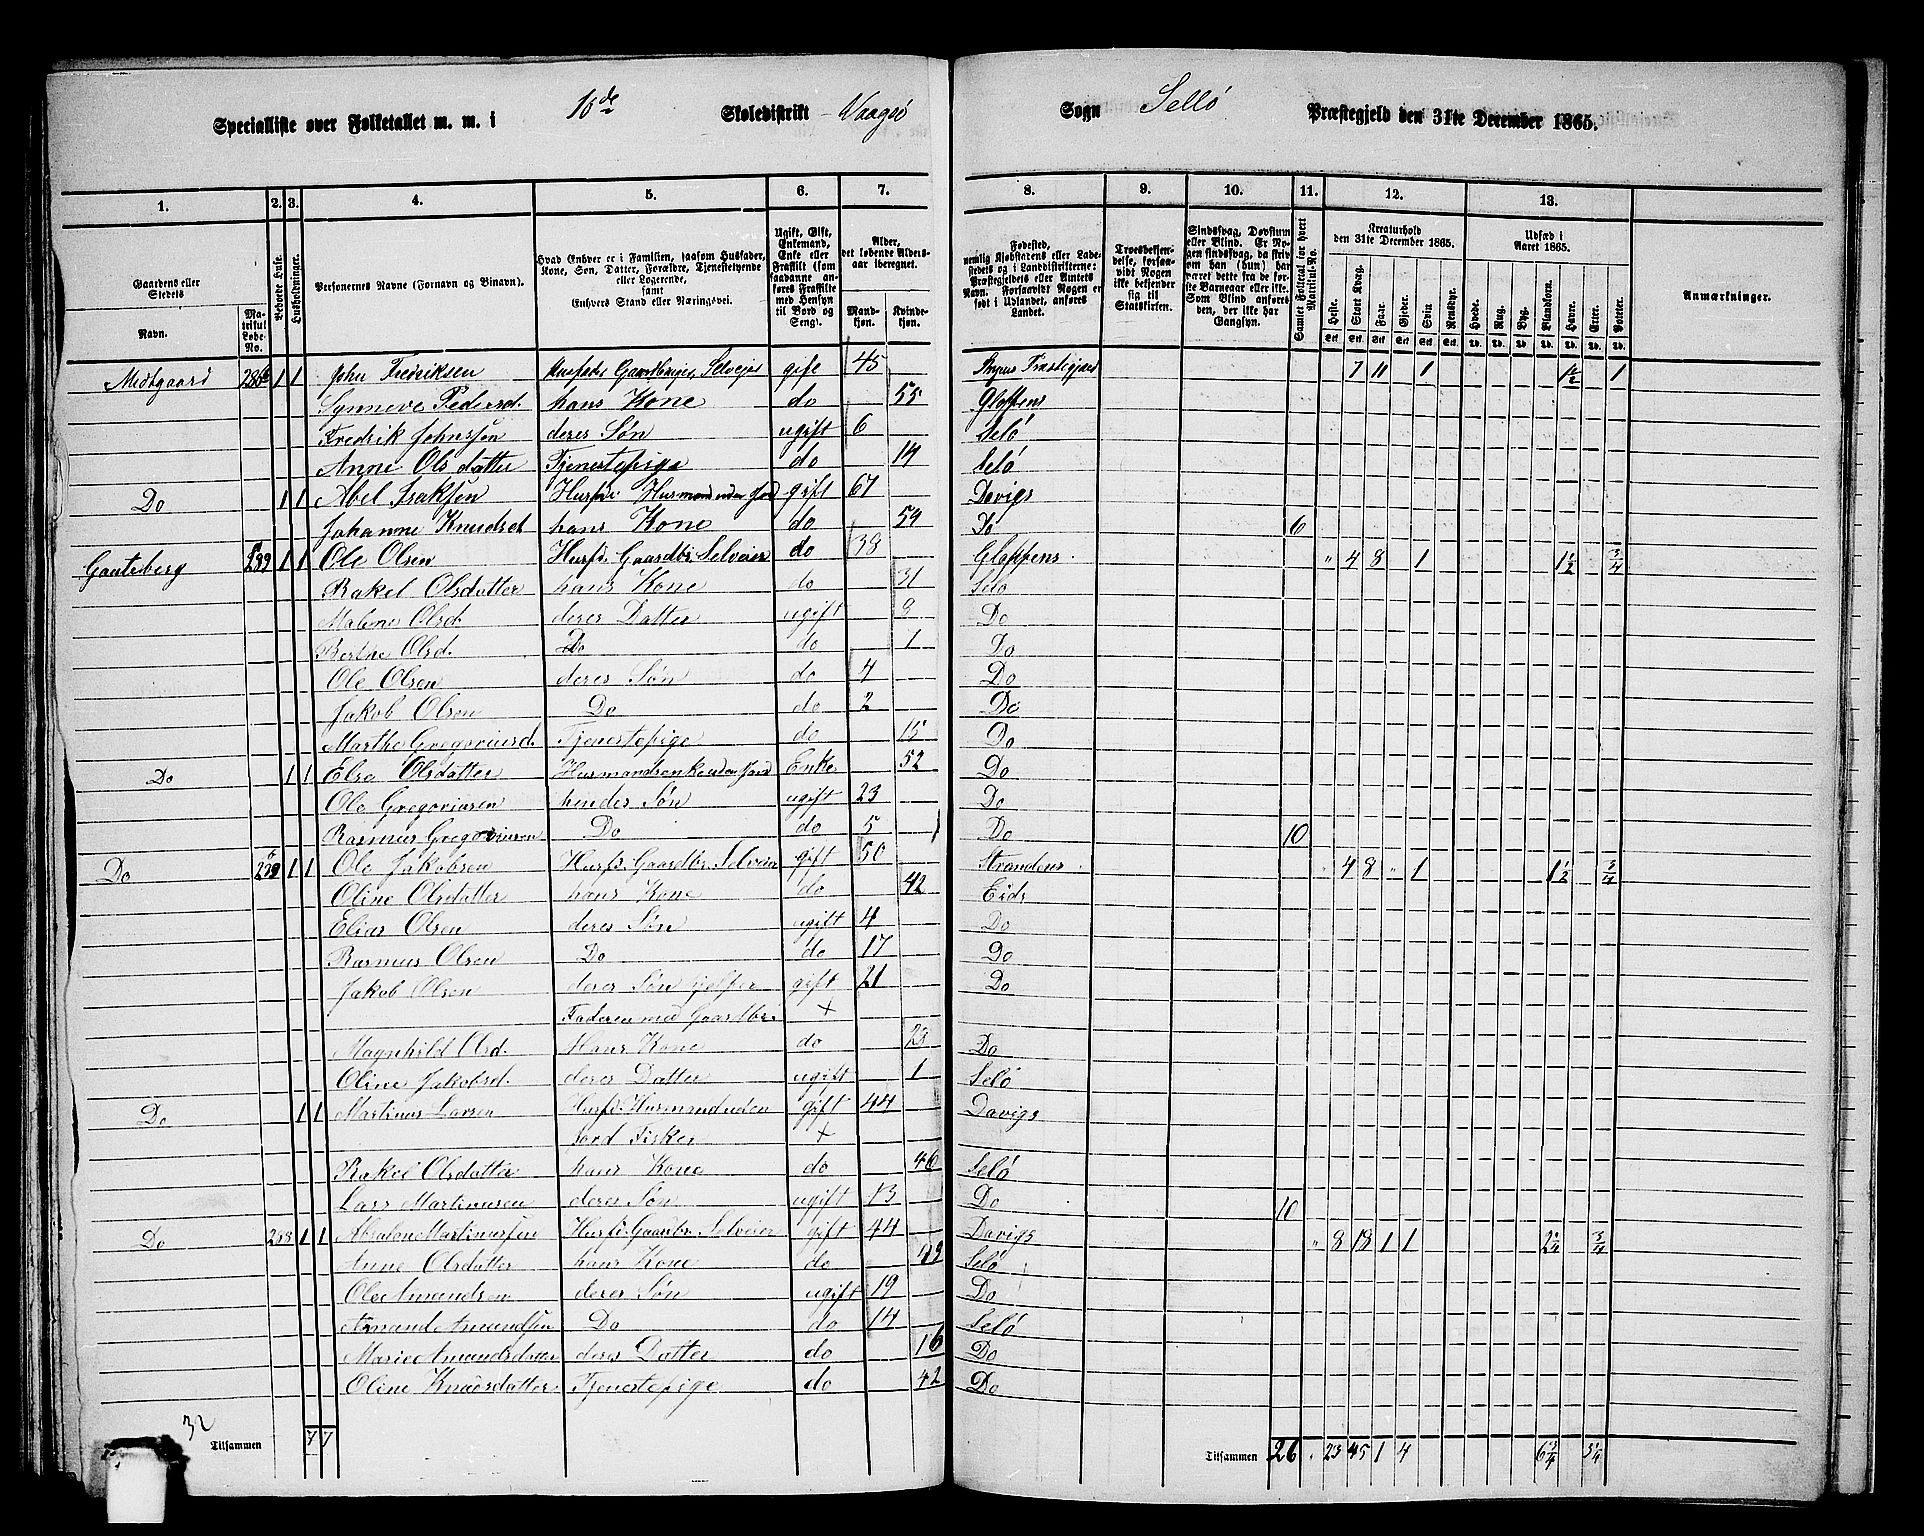 Specialliste over Folketallet m. m. i 10de Skoledistrikt Vaagsö Sogn Sellö Præstegjeld den 31te December 1865.
1. 2. 3. 4. 5. 6. 7. 8. 9. 10. 11. 12. 13.
Gaardens eller Stedets Navn. Matrikul Løbe-No. Beboede Huse. Husholdninger. Personernes Navne (Fornavn og Binavn). Hvad Enhver er i Familien, saasom Husfader, Kone, Søn, Datter, Forældre, Tjenestetyende eller Logerende, samt Enhvers Stand eller Næringsvei. Ugift, Gift, Enkemand, Enke eller Fraskilt (som saadanne anføres Fraskilte med Hensyn til Bord og Seng). Alder, det løbende Aldersaar iberegnet. Mandkjøn. Kvindekjøn.
Fødested, nemlig Kjøbstadens eller Ladestedets og i Landdistrikterne: Præstegjeldets eller Amtets Navn. Forsaavidt Nogen er født i Udlandet, anføres Landet. Troesbekjendelse, forsaavidt Nogen ikke bekjender sig til Statskirken. Sindssvag, Døvstum eller Blind. Er Nogen sindssvag, da skrives om han (hun) har været dette fra de første Barneaar eller ikke. Som Blind anføres den, der ikke har Gangsyn. Samlet Folketal for hvert Matrikul-No. Kreaturhold den 31te December 1865. Heste. Stort Kvæg. Faar. Gjeder. Svin. Rensdyr. Udsæd i Aaret 1865. Hvede. Rug. Byg. Blandkorn. Havre. Erter. Poteter. Anmærkninger.
Midtgaard 286 1 1 John Fredriksen Husfader Gaardbruger Selveier gift 45 7 11 1 1½ 1
Synneve Pedersd. hans Kone do 55 Gloppens
Fredrik Johnsøn deres Søn ugift 6 Selö
Anne Olsdatter Tjenestepige do 14 Selö
Do 1 1 Abel Isaksen Husfd. Husmand uden Jord gift 67 Davigs
Johanne Knudsd. hans Kone do 54 Do 6
Gouteberg 1 1 Ole Olsen Husfd. Gaardbr. Selveier do 38 Gloppens " 4 8 1 1½ ¾
Rakel Olsdatter hans Kone do 31 Selö
Malene Olsd. deres Datter ugift 9 Do
Berthe Olsd. Do do 1 Do
Ole Olsen deres Søn do 4 Do
Jakob Olsen Do do 2 Do
Marthe Gregoriusd. Tjenestepige do 15 Do
Do 1 1 Else Olsdatter Husmandsenke uden Jord Enke 52 Do
Ole Gregoriusen hendes Søn ugift 23 Do
Rasmus Gregoriusen Do do 5 Do 10
Do 1 1 Ole Jakobsen Husfd. Gaardbr. Selveier gift 50 Strandens " 4 8 " 1 1½ ¾
Oline Olsdatter hans Kone do 42 Eids
Elias Olsen deres Søn ugift 4 Do
Rasmus Olsen Do do 17 Do
Jakob Olsen deres Søn hjelper gift 21 Do
Faderen med Gaardbr. +
Magnhild Olsd. Hans Kone do 23 Do
Oline Jakobsd. deres Datter ugift 1 Selö
Do 1 1 Martinus Larsen Husfd. Husmand uden gift 44 Davigs
Jord Fisker +
Rakel Olsdatter hans Kone do 46 Selö
Lars Martinusen deres Søn ugift 13 Do 10
Do 288 1 1 Martinussen Husfd. Gaardbr. Selveier gift 44 Davigs " 8 18 1 1 2¼ ¾
Anne Olsdatter hans Kone do 49 Selö
Ole Amundsen deres Søn ugift 19 Do
Amand Amundsen Do do 14 Selö
Marie Amundsdatter deres Datter do 16 Do
Oline Knudsdatter Tjenestepige do 42 Do
32
Tilsammen 7 7 Tilsammen 26 " 23 45 1 4 6¾ 3¼